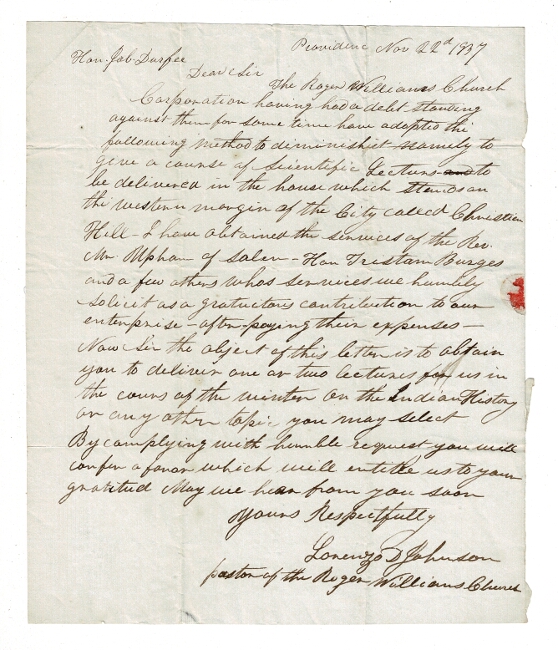 Providence Nov 22d 1837
Hon. Job Durfee
Dear Sir
The Roger Williams Church
Corporation having had a debt standing
against them for some time have adopted the
following method to diminish it namely to
give a course of Scientific Lectures and to
be delivered in the house which stands on
the western margin of the City called Christian
Hill - I have obtained the services of the Rev.
Mr Upham of Salem - Hon Tristam Burges
and a few others whos services we humbly
solicit as a gratuitous contribution to our
enterprise - after paying their expenses -
Now Sir the object of this letter is to obtain
you to deliver one or two lectures for us in
the cours of the winter on the Indian History
or any other topic you may select
By complying with humble request you will
confer a favor which will entitle us to your
gratitud May we hear from you soon
Yours Respectfully
Lorenzo D Johnson
pastor of the Roger Williams Church